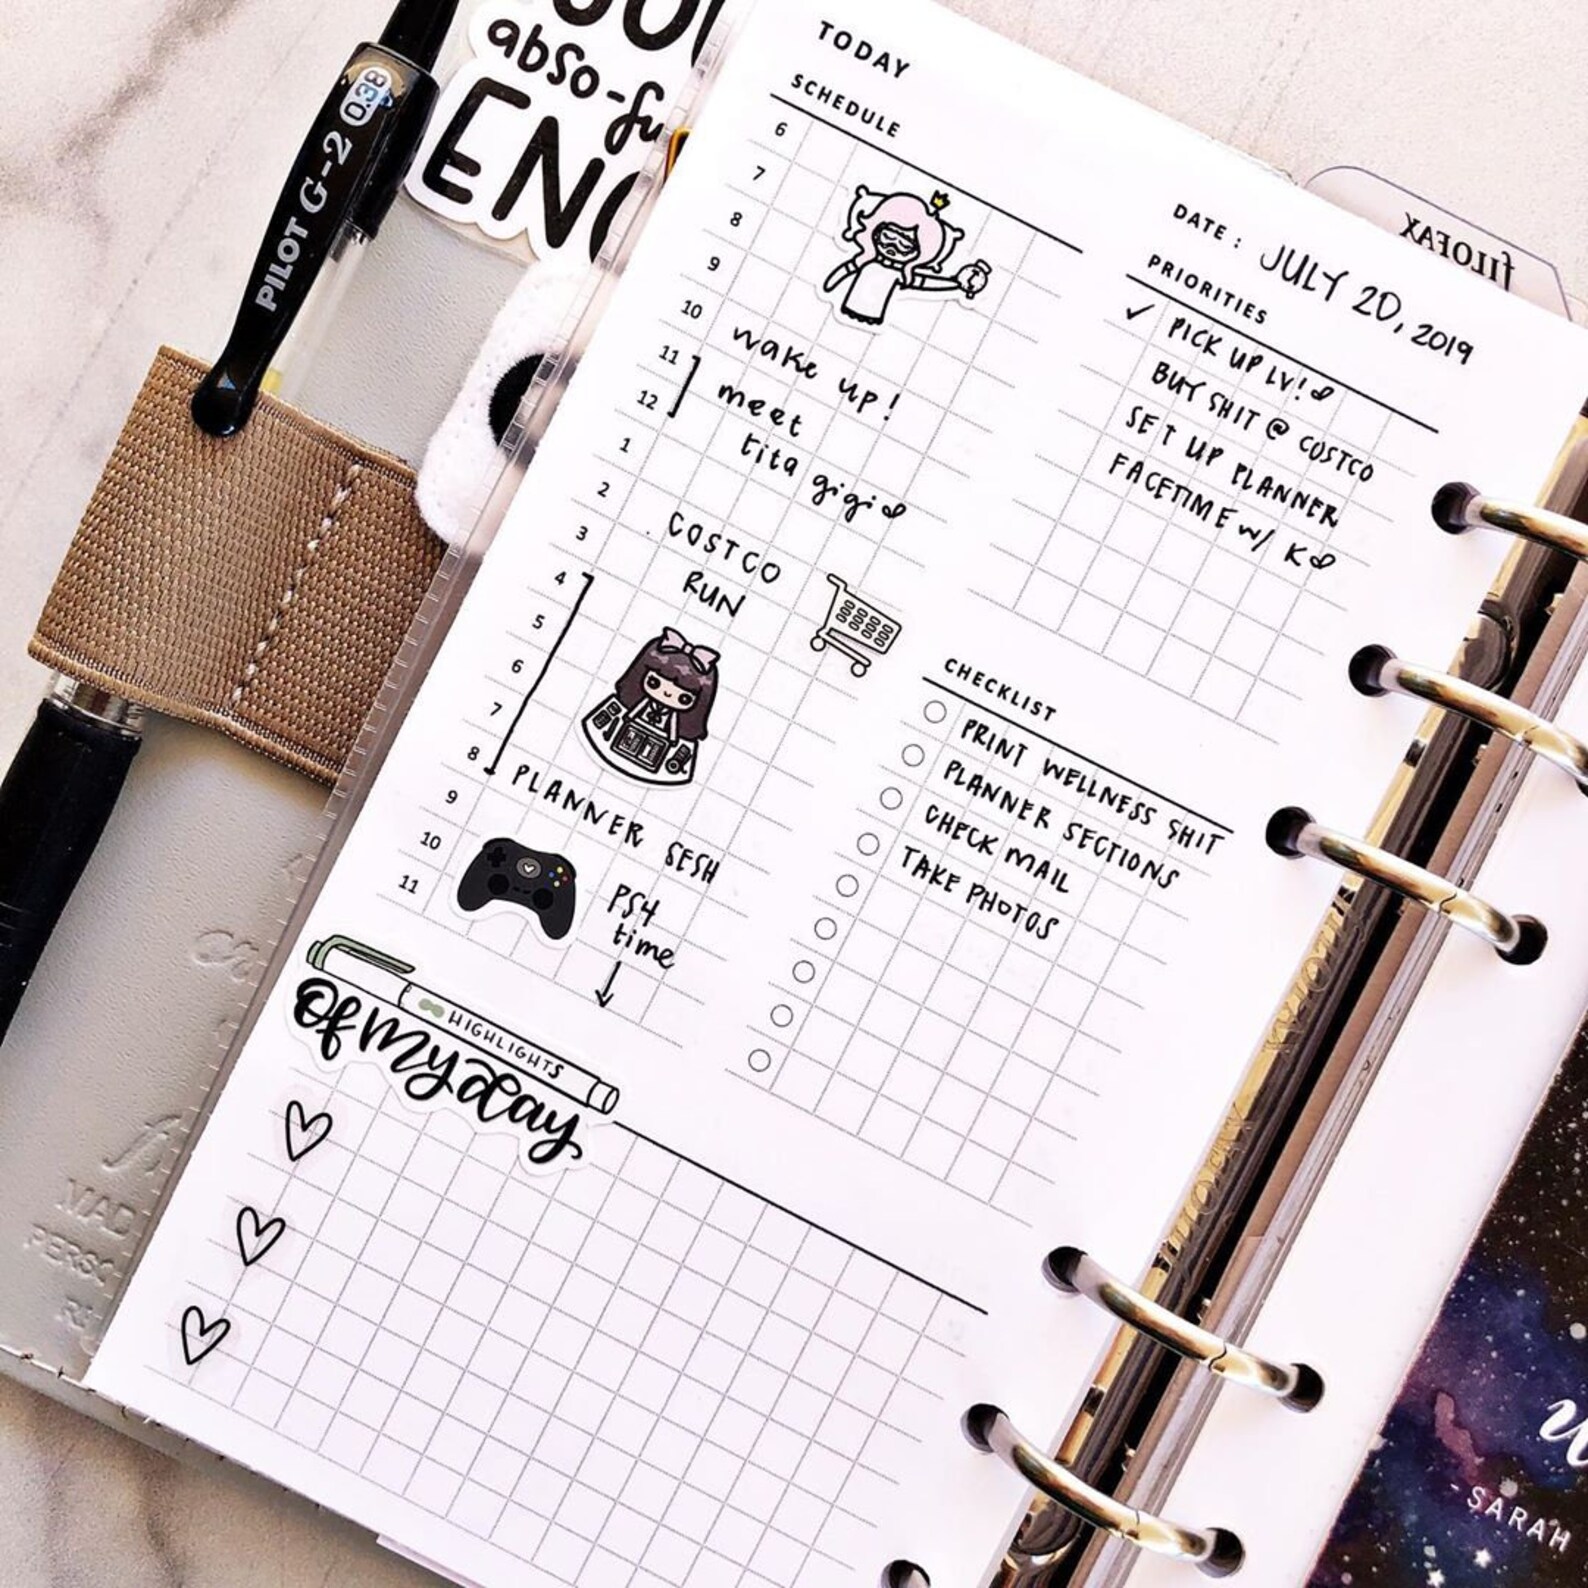 PILOT G-2 0.38
abso-fu
TODAY
SCHEDULE
6
7
8
9
10 wake up!
11 meet
12 tita gigi
1
2 COSTCO
3 RUN
4
5
6
7
8 PLANNER SESH
9
10 PS4
11 time
HIGHLIGHTS
Of my day
DATE: JULY 20, 2019
PRIORITIES
✓ PICK UP LV!
BUY SHIT @ COSTCO
SET UP PLANNER
FACETIME w/ K
CHECKLIST
PRINT WELLNESS SHIT
PLANNER SECTIONS
CHECK MAIL
TAKE PHOTOS
FILOFAX
MAD
PERSO
- SARAH